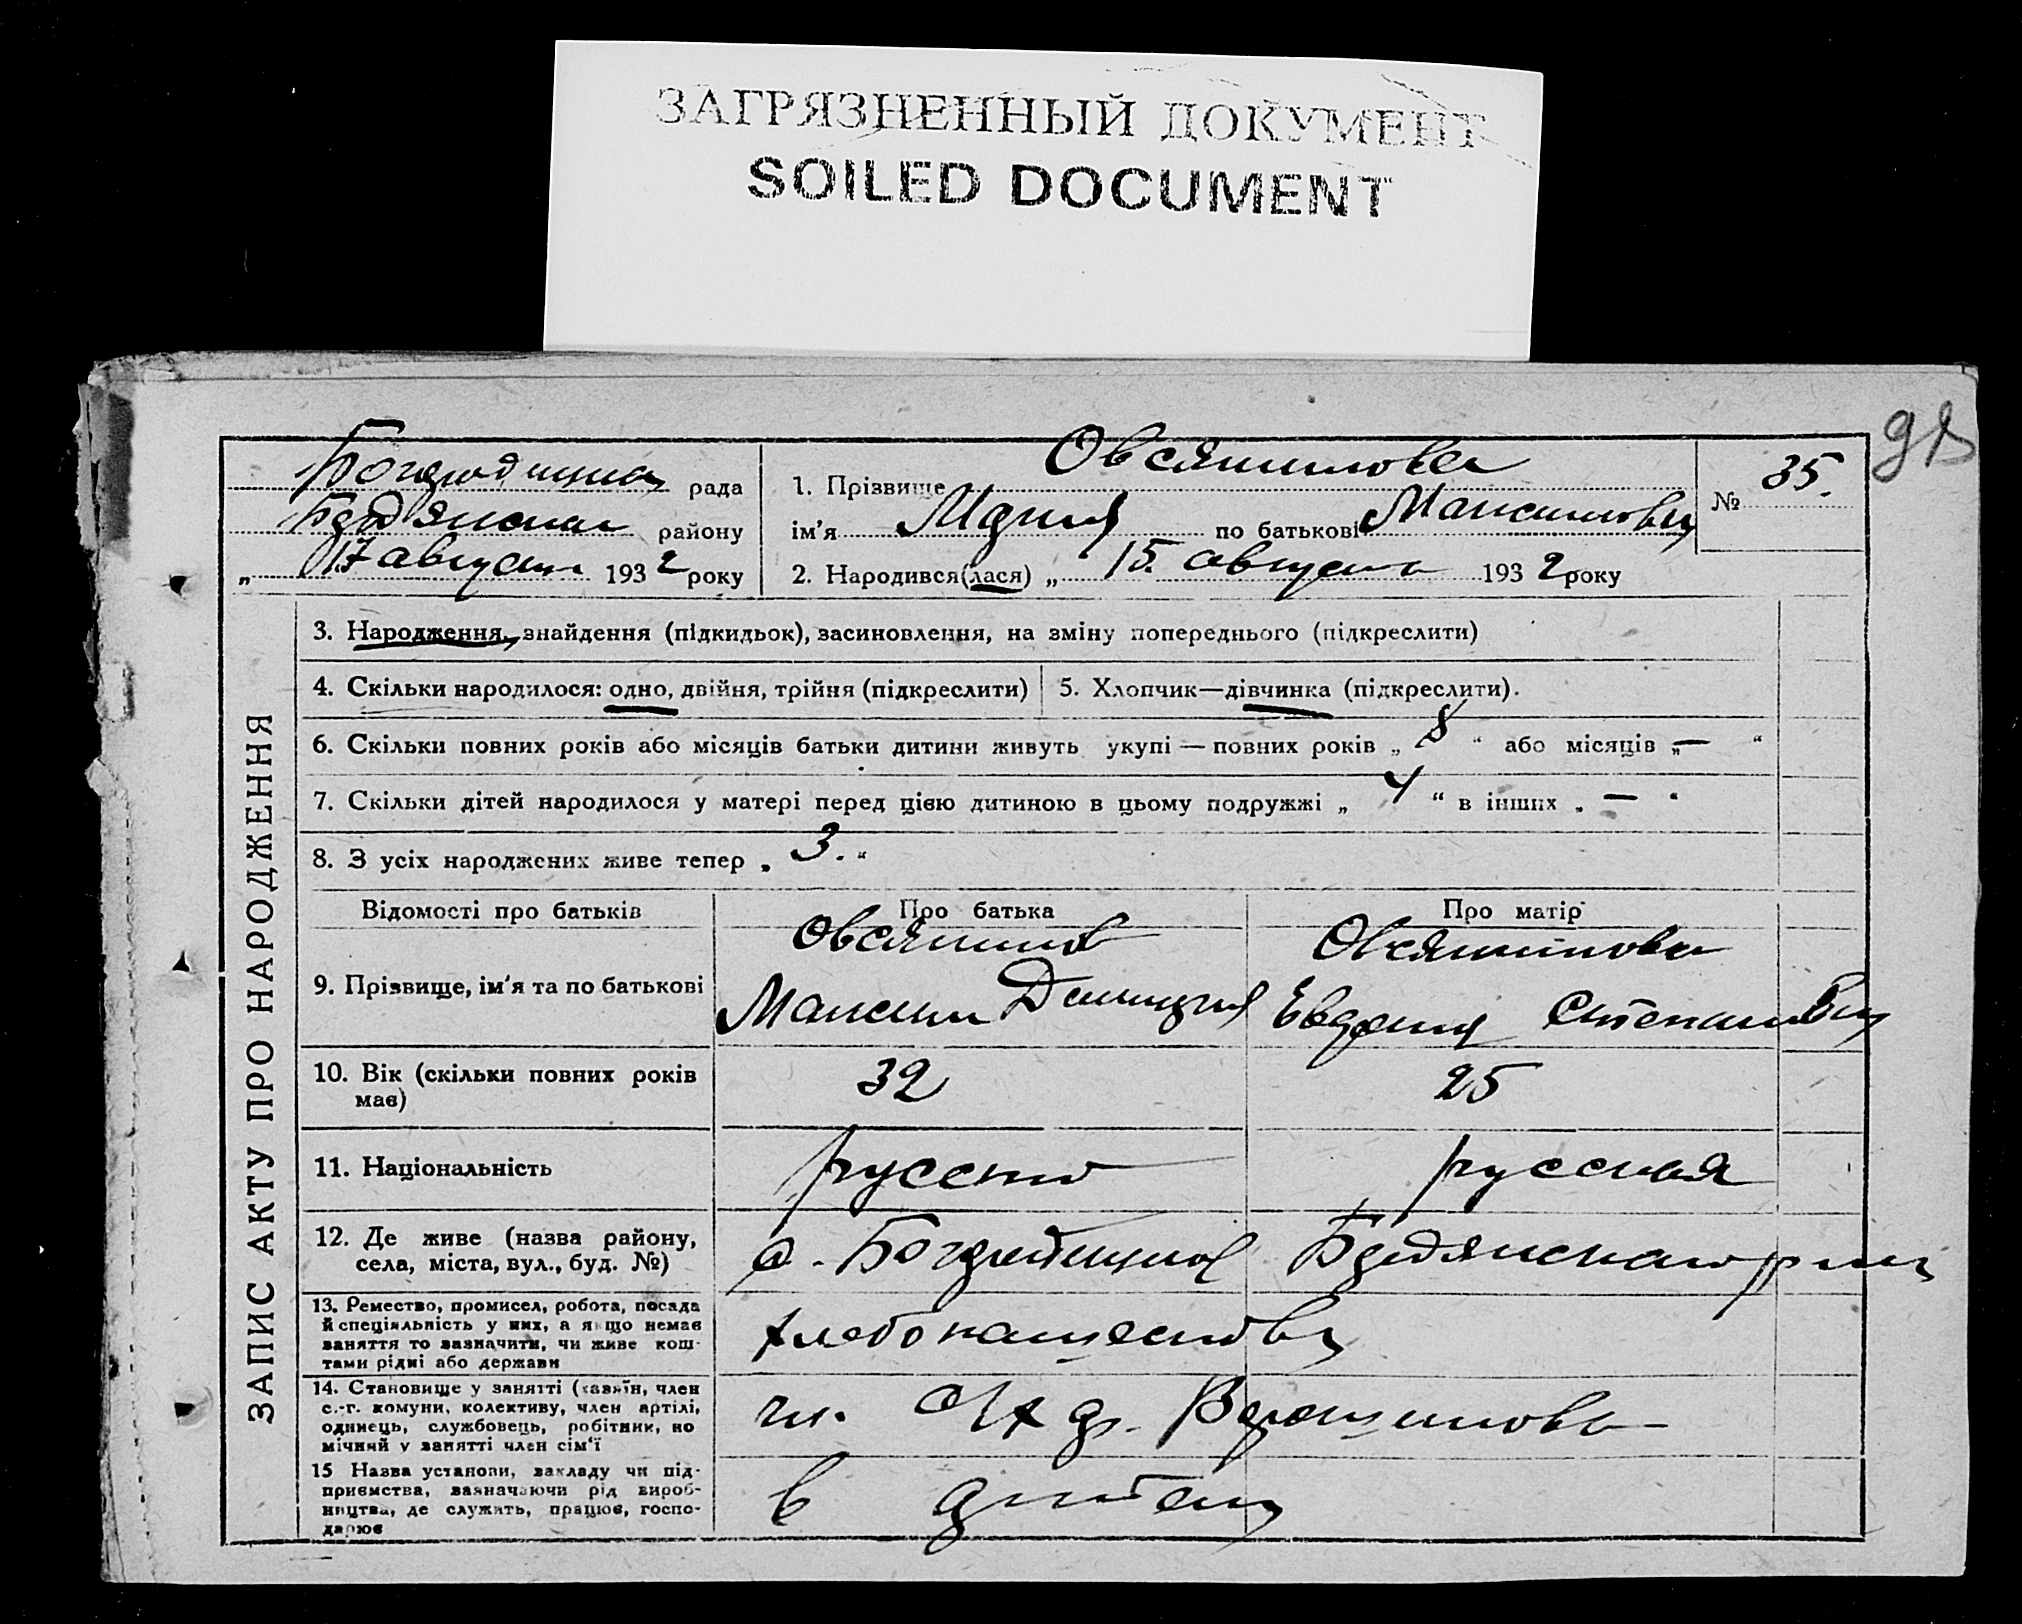 ЗАГРЯЗНЕННЫЙ ДОКУМЕНТ
SOILED DOCUMENT
рада
района
„ 17 августа 1932 року
1. Прізвище Овсянникова
ім’я Мария по батькові Максимовна
2. Народився(лася) „ 15. августа 1932 року
№ 35.
ЗАПИС АКТУ ПРО НАРОДЖЕННЯ
3. Народження, знайдення (підкидьок), засиновлення, на зміну попереднього (підкреслити)
4. Скільки народилося: одно, двійня, трійня (підкреслити)
5. Хлопчик—дівчинка (підкреслити).
6. Скільки повних років або місяців батьки дитини живуть укупі — повних років „ 8 “ або місяців „ — “
7. Скільки дітей народилося у матері перед цією дитиною в цьому подружжі „ 4 “ в інших „ — “
8. З усіх народжених живе тепер „ 3. “
Відомості про батьків
Про батька
Про матір
9. Прізвище, ім’я та по батькові
Овсянников
Максим
Овсянникова
Степановна
10. Вік (скільки повних років має)
32
25
11. Національність
русский
русская
12. Де живе (назва району,
села, міста, вул., буд. №)
с.
13. Ремество, промисел, робота, посада
й спеціяльність у них, а якщо немає
заняття то зазначити, чи живе кош-
тами рідні або держави
хлебопашество
14. Становище у занятті (хазяїн, член
с.-г. комуни, колективу, член артілі,
одинець, службовець, робітник, по
мічний у занятті член сім’ї
чл.
15 Назва установи, закладу чи під-
приємства, зазначаючи рід вироб-
ництва, де служить, працює, госпо-
дарює
в